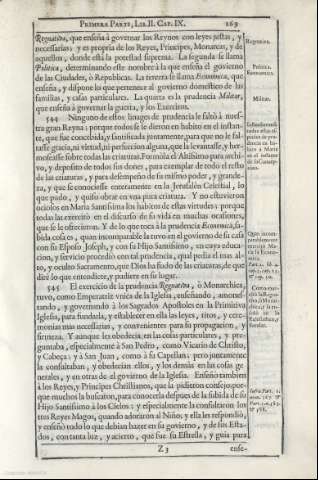 PRIMERA PARTE, LIB. II. CAP. IX. 169
Regnativa, que enseña à governar los Reynos con leyes justas, y
necessarias; y es propria de los Reyes, Principes, Monarcas, y de
aquellos, donde està la potestad suprema. La segunda se llama
Politica, determinando este nombre à la que enseña el govierno
de las Ciudades, ò Republicas. La tercera se llama Economica, que
enseña, y dispone lo que pertenece al govierno domestico de las
familias, y casas particulares. La quarta es la prudencia Militar,
que enseña à governar la guerra, y los Exercitos.
544 Ninguno de estos linages de prudencia le faltò à nuestra
gran Reyna: porque todos se le dieron en habito en el instante,
que fue concebida, y santificada juntamente, para que no le faltasse
gracia, ni virtud, ni perfeccion alguna, que la levantasse, y hermoseasse
sobre todas las criaturas. Formòla el Altissimo para archivo,
y deposito de todos sus dones, para exemplar de todo el resto
de las criaturas, y para desempeño de su mismo poder, y grandeza,
y que se conociesse enteramente en la Jerusalèn Celestial, lo
que pudo, y quiso obrar en vna pura criatura. Y no estuvieron
ociosos en Maria Santissima los habitos de estas virtudes; porque
todas las exercitò en el discurso de su vida en muchas ocasiones,
que se le ofrecieron. Y de lo que toca à la prudencia Economica, sabida
cosa es, quan incomparable la tuvo en el govierno de su casa
con su Esposo Joseph, y con su Hijo Santissimo, en cuya educacion,
y servicio procediò con tal prudencia, qual pedia el mas alto,
y oculto Sacramento, que Dios ha fiado de las criaturas, de que
dirè lo que entendiere, y pudiere en su lugar.
545 El exercicio de la prudencia Regnativa, ò Monarchica,
tuvo, como Emperatriz vnica de la Iglesia, enseñando, amonestando,
y governando à los Sagrados Apostoles en la Primitiva
Iglesia, para fundarla, y establecer en ella las leyes, ritos, y ceremonias
mas necessarias, y convenientes para su propagacion, y
firmeza. Y aunque les obedecia en las cosas particulares, y preguntaba,
especialmente à San Pedro, como Vicario de Christo,
y Cabeça; y à San Juan, como à su Capellan; pero juntamente
la consultaban, y obedecian ellos, y los demàs en las cosas generales,
y en otras de el govierno de la Iglesia. Enseñò tambien
à los Reyes, y Principes Christianos, que la pidieron consejo; porque
muchos la buscaron, para conocerla despues de la subida de su
Hijo Santissimo à los Cielos: y especialmente la consultaron los
tres Reyes Magos, quando adoraron al Niño; y ella les respondiò,
y enseñò todo lo que debian hazer en su govierno, y de sus Estados,
con tanta luz, y acierto, que fue su Estrella, y guia para
Z 3 ense-
Regnativa.
Politica.
Economica.
Militar.